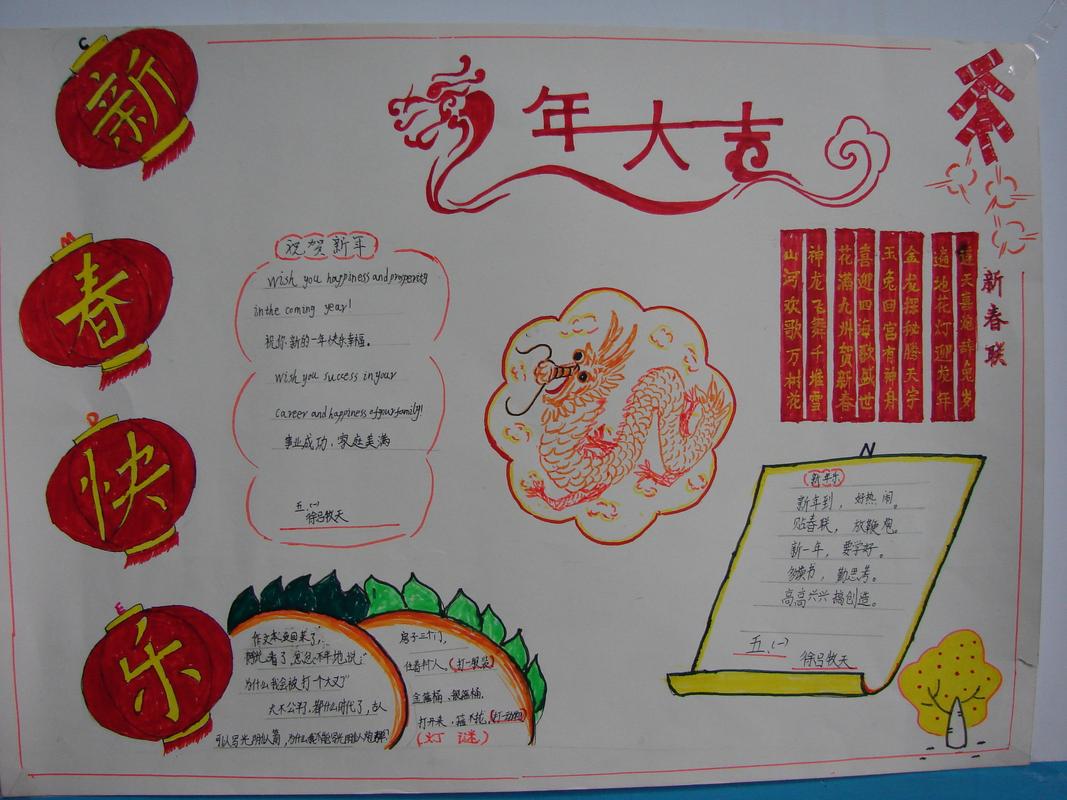 新
春
快
乐
年大吉
祝贺新年
Wish you happiness and prosperity
in the coming year!
祝你新的一年快乐幸福。
Wish you success in your
career and happiness of your family!
事业成功，家庭美满
五.(一)
徐吕牧天
新春联
天喜炮辞兔岁
遍地花灯迎龙年
金龙探秘腾天宇
玉兔回宫有神舟
喜迎四海歌盛世
花满九州贺新春
神龙飞舞千堆雪
山河欢歌万树花
新年乐
新年到，好热闹。
贴春联，放鞭炮。
新一年，要学好。
多读书，勤思考。
高高兴兴搞创造。
五.(一)
徐吕牧天
作文本发回来了，
为什么我会被打一个大叉"
太不公平了，都什么时代了，古人
房子三个门，
住着半个人。(打一服装)
金箍桶、银箍桶，
打开来，箍不拢。
(灯谜)
C
M
P
E
N